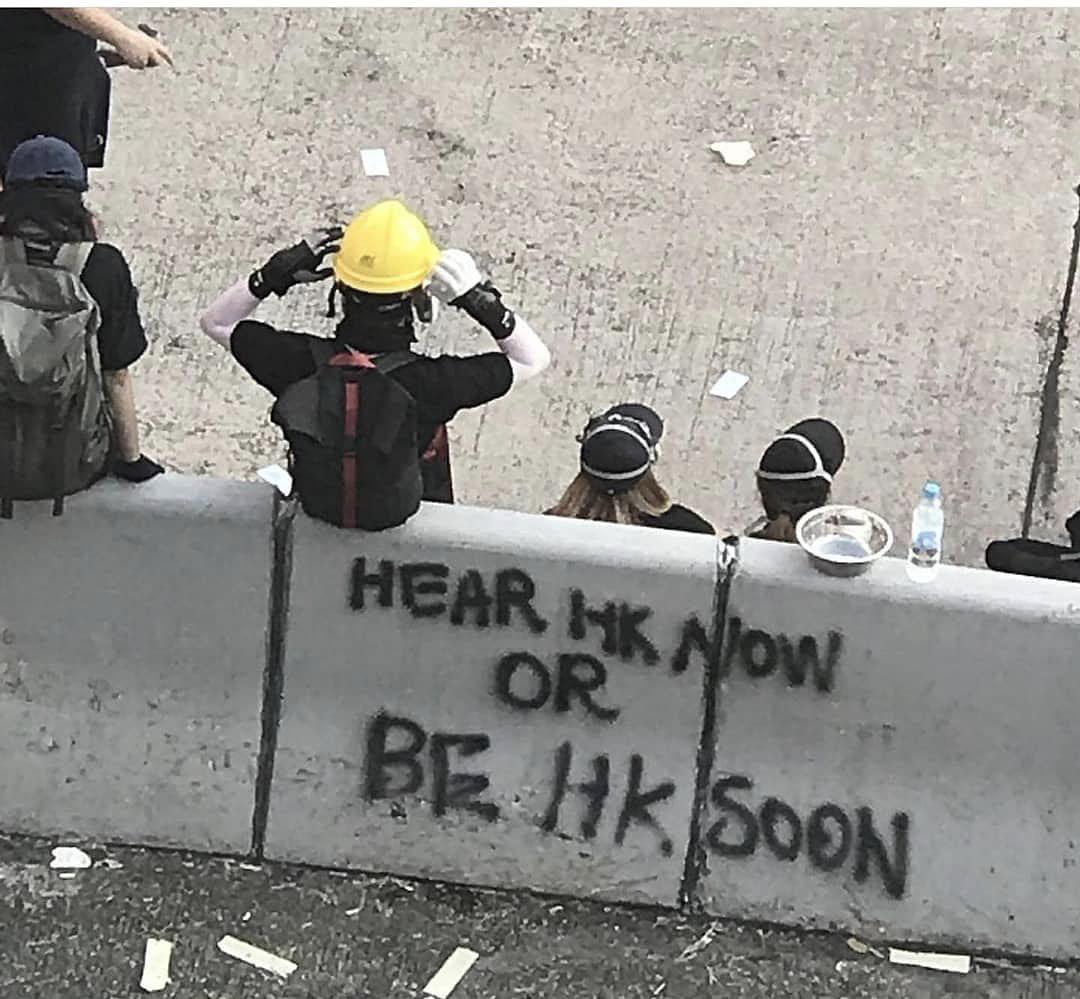 HEAR HK NOW
OR
BE HK SOON